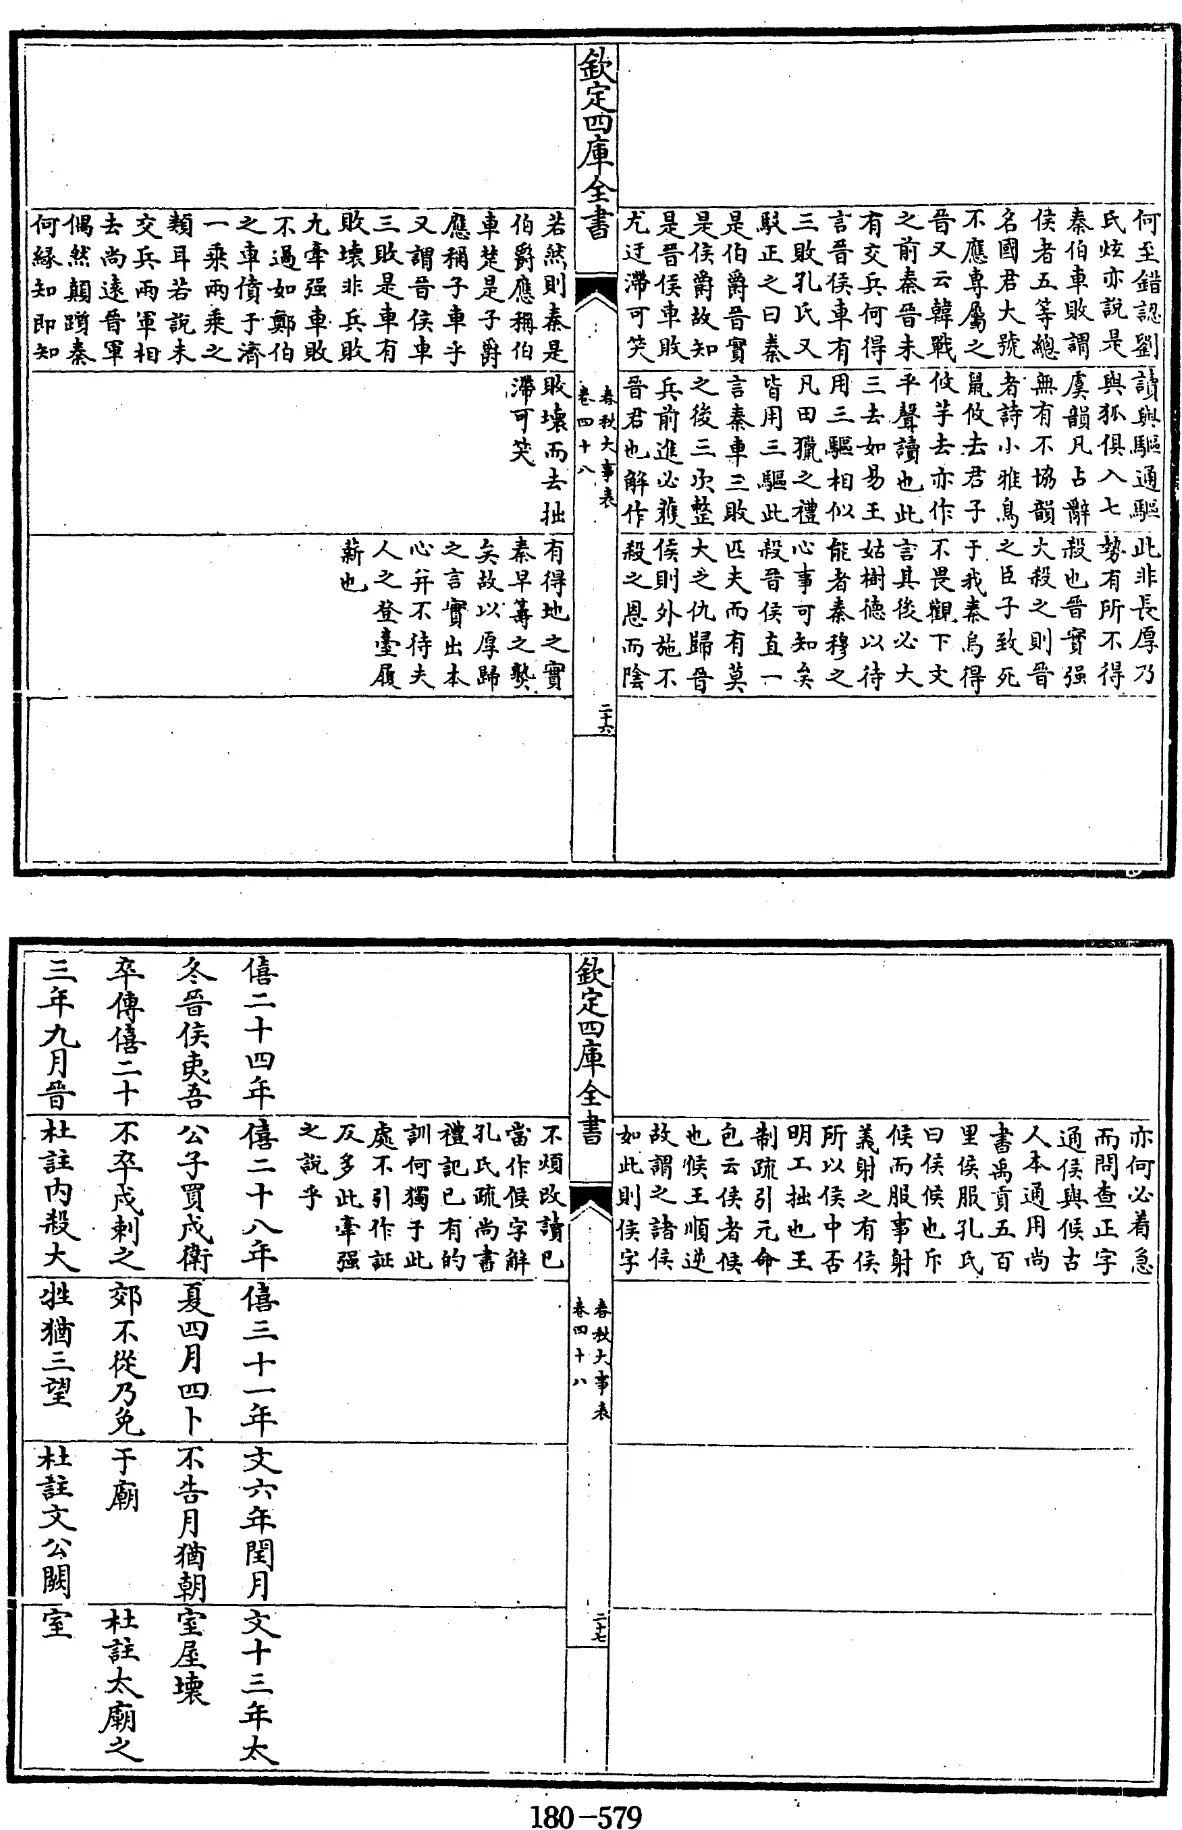 欽定四庫全書
何至錯認劉
氏炫亦說是
秦伯車敗謂
侯者五等總
名國君大號
不應專屬之
晉又云韓戰
之前秦晉未
有交兵何得
言晉侯車有
三敗孔氏又
駁正之曰秦
是伯爵晉實
是侯爵故知
是晉侯車敗
尤迂滯可笑
若然則秦是
伯爵應稱伯
車楚是子爵
應稱子車乎
又謂晉侯車
三敗是車有
敗壞非兵敗
尤牽强車敗
不過如鄭伯
之車僨于濟
一乘兩乘之
類耳若說未
交兵兩軍相
去尚遠晉軍
偶然顛躓秦
何緣知即知
讀與驅通驅
與狐俱入七
虞韻凡占辭
無有不協韻
者詩小雅鳥
鼠攸去君子
攸芋去亦作
平聲讀也此
三去如易王
用三驅相似
凡田獵之禮
皆用三驅此
言秦車三敗
之後三次整
兵前進必獲
晉君也解作
敗壞而去拙
滯可笑
此非長厚乃
勢有所不得
殺也晉實强
大殺之則晉
之臣子致死
于我秦烏得
不畏觀下文
言其後必大
姑樹德以待
能者秦穆之
心事可知矣
殺晉侯直一
匹夫而有莫
大之仇歸晉
侯則外施不
殺之恩而陰
有得地之實
秦早籌之熟
矣故以厚歸
之言實出本
心并不待夫
人之登臺履
薪也
春秋大事表
卷四十八
二十六
欽定四庫全書
亦何必着急
而問查正字
通侯與候古
人本通用尚
書禹貢五百
里侯服孔氏
曰侯候也斥
候而服事射
義射之有侯
所以侯中否
明工拙也王
制疏引元命
包云侯者候
也候王順逆
故謂之諸侯
如此則侯字
不煩改讀已
當作候字解
孔氏疏尚書
禮記已有的
訓何獨于此
處不引作証
反多此牽强
之說乎
春秋大事表
卷四十八
二十七
僖二十四年
冬晉侯夷吾
卒傳僖二十
三年九月晉
僖二十八年
公子買戍衛
不卒戍刺之
杜註内殺大
僖三十一年
夏四月四卜
郊不從乃免
牲猶三望
文六年閏月
不告月猶朝
于廟
杜註文公闕
文十三年太
室屋壞
杜註太廟之
室
180-579